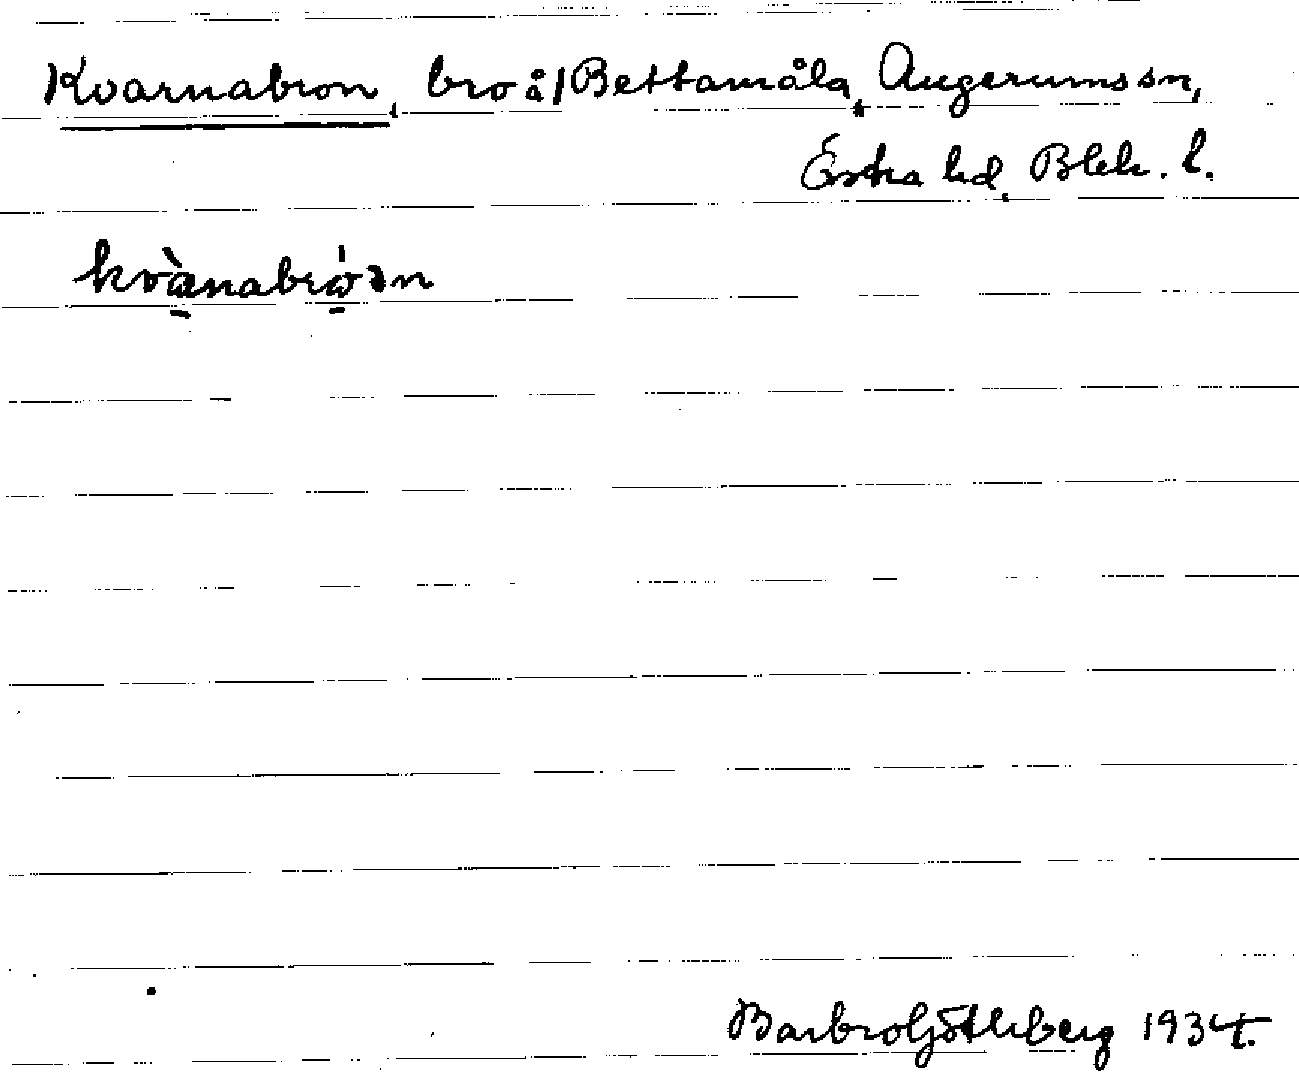 Kvarnabron, bro å/Bettamåla, Augerums sn,
Östra hd. Blek. l.
kvànabróən
Barbro Götlreberg 1934.